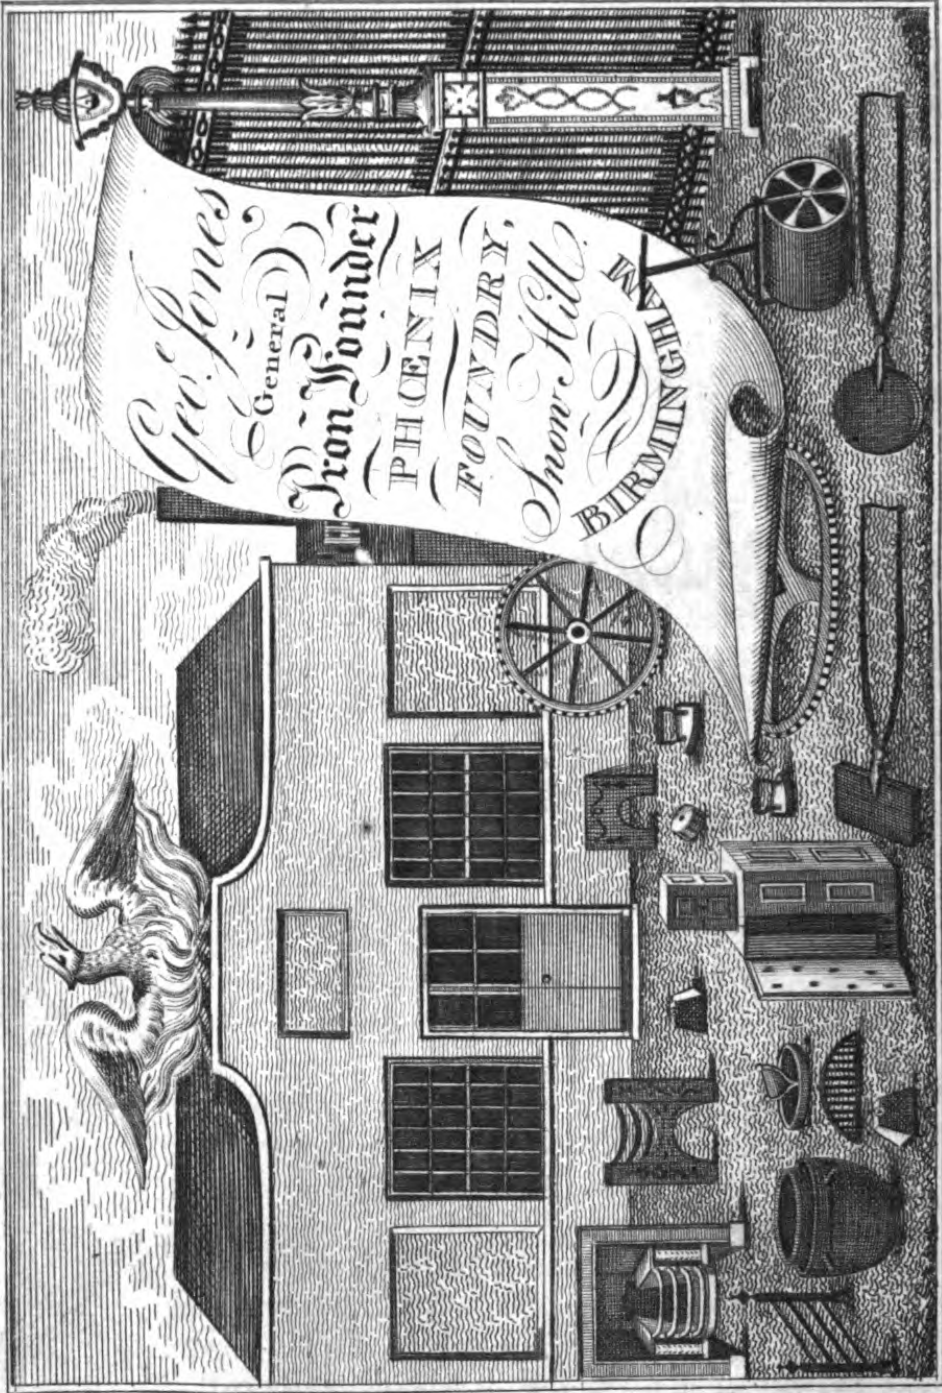 Geo. Jones,
General
Iron Founder
PHŒNIX
FOUNDRY,
Snow Hill
BIRMINGHAM